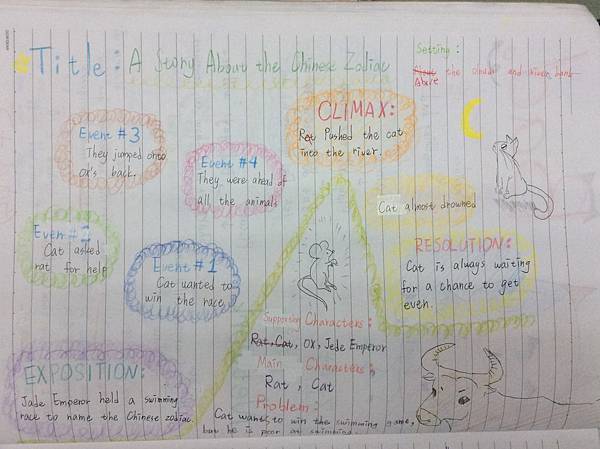 Title: A Story About the Chinese Zodiac
Setting:
Above the clouds and river bank
CLIMAX:
Rat Pushed the cat
into the river.
Event #3
They jumped onto
ox's back.
Event #4
They were ahead of
all the animals
Cat almost drowned
Event #2
Cat asked
rat for help
Event #1
Cat wanted to
win the race
RESOLUTION:
Cat is always waiting
for a chance to get
even.
Supporting Characters:
Rat, Cat, ox, Jede Emperor
Main Characters:
Rat, Cat
Problem:
Cat wants to win the swimming game,
but he is poor at swimming.
EXPOSITION:
Jade Emperor held a swimming
race to name the Chinese zodiac.